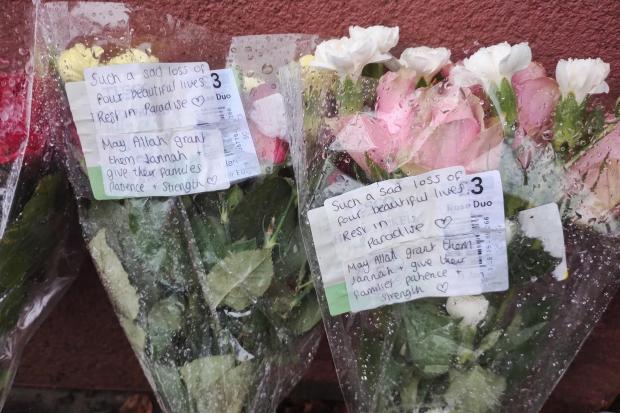 Such a sad loss of
four beautiful lives
Rest in Paradise ♡
May Allah grant
them Jannah +
give their families
Patience +
Strength ♡
3
Duo
Such a sad loss of
four beautiful lives
Rest in
Paradise ♡
May Allah grant them
Jannah + give their
families patience +
strength ♡
3
Rose Duo